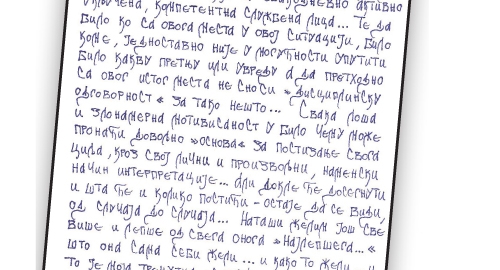 укључена, компетентна службена лица... Те да
било ко са овога места у овој ситуацији, било
коме, једноставно није у могућности упутити
било какву претњу или увреду а да претходно
са овог истог места не сноси »дисциплинску
одговорност« за тако нешто... Свака лоша
и злонамерна мотивисаност у било чему може
пронаћи довољно »основа« за постизање свога
циља, кроз свој лични и произвољни, наменски
начин интерпретације... Али докле ће досегнути
и шта ће и колико постићи - остаје да се види,
од случаја до случаја... Наташи желим још све
више и лепше од свега онога »најлепшега...«
што она сама себи жели... и како то жели... и
то је моја